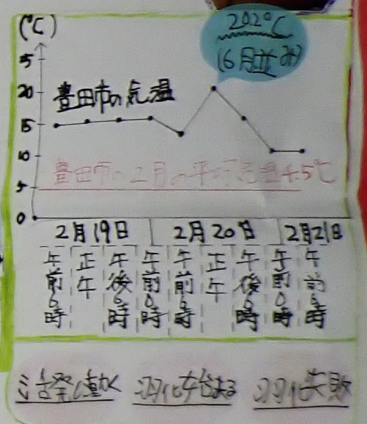 (℃)
20.2℃
(6月並み)
25
20
15
10
5
0
豊田市の気温
豊田市の2月の平均気温4.5℃
2月19日 2月20日 2月21日
午前6時
正午
午後6時
午前0時
午前6時
正午
午後6時
午前0時
午前6時
活発に動く 羽化始まる 羽化失敗